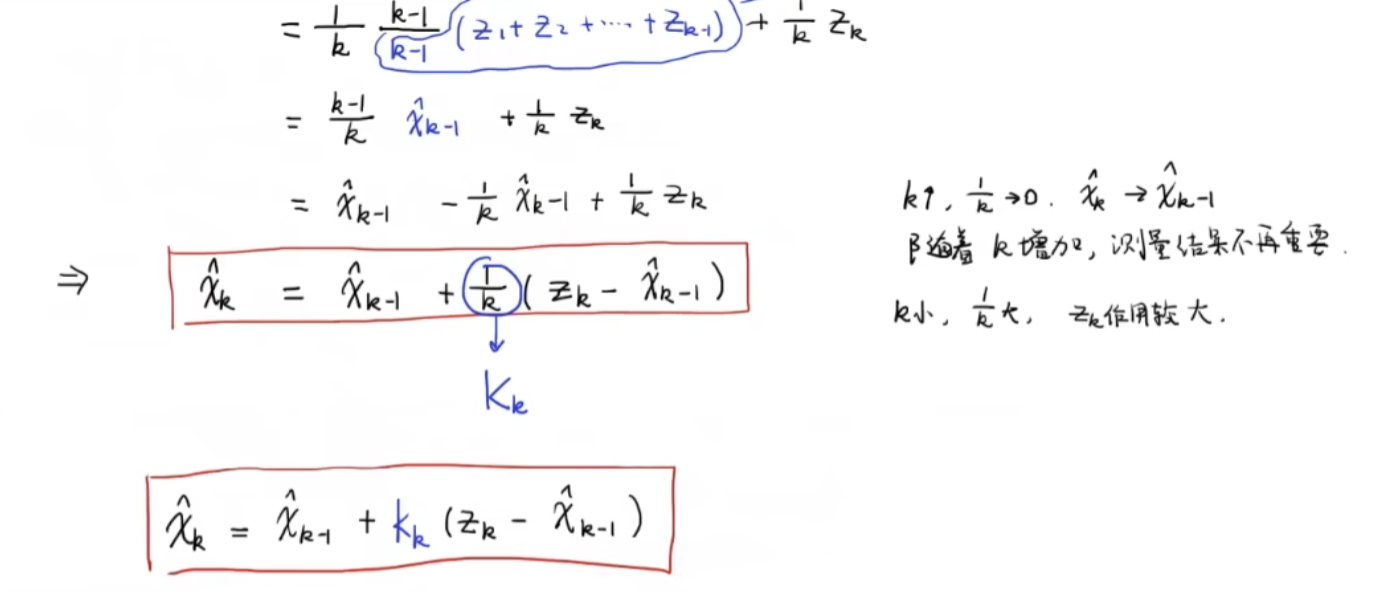 = 1/k (k-1)/(k-1) (z₁ + z₂ + ⋯ + z_{k-1}) + 1/k z_k
= (k-1)/k x̂_{k-1} + 1/k z_k
= x̂_{k-1} - 1/k x̂_{k-1} + 1/k z_k
⇒ x̂_k = x̂_{k-1} + 1/k (z_k - x̂_{k-1})
K_k
x̂_k = x̂_{k-1} + K_k (z_k - x̂_{k-1})
k↑, 1/k → 0. x̂_k → x̂_{k-1}
随着 k 增加, 测量结果不再重要.
k小, 1/k 大, z_k作用较大.